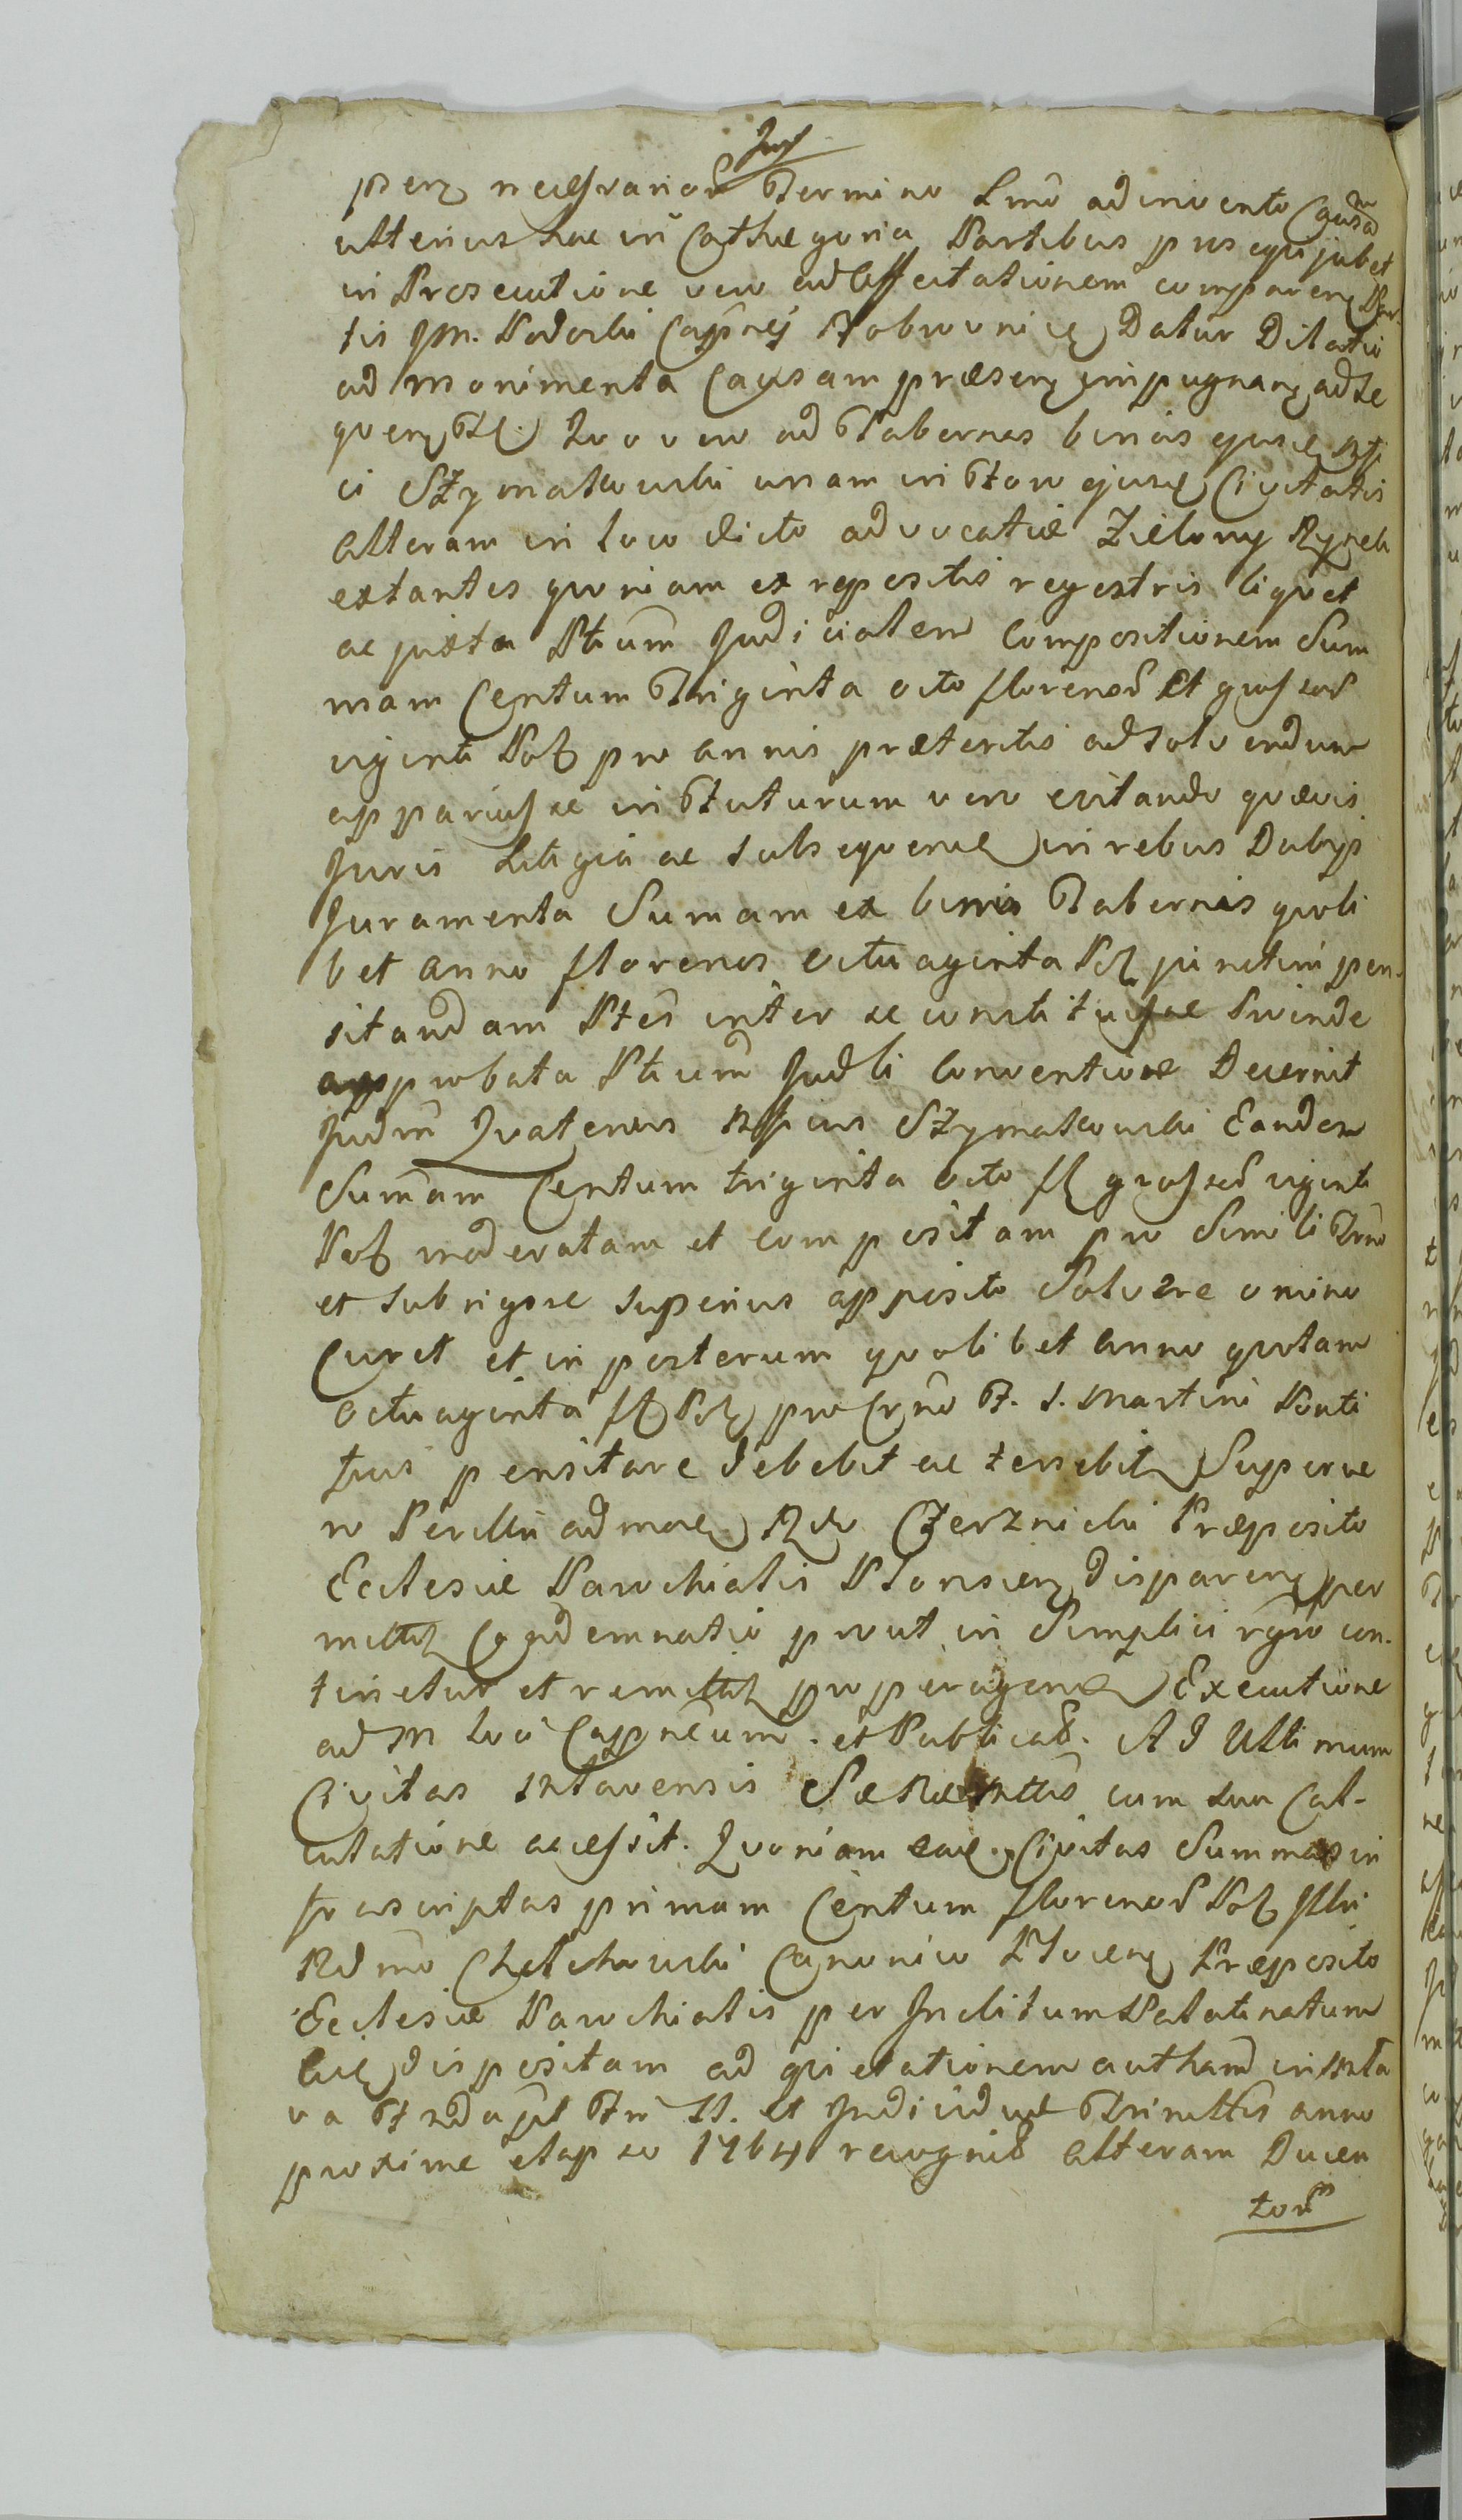 per necessarior Termino Lmo adinvento Causam
ulterius hac in Cathegoria Partibus prosequi jubet
in Prosecutione vero ad affectationem comparen Par
tis Jm. Podoski Capnej Dobrzynien Datur Dilatio
ad monimenta Causam præsen impugnan adse
quen Quo vero ad Tabernas binas ejusd
ci Szymakowski unam in Foro ejusd Civitatis
alteram in loco dicto advocatiæ Zielony Rynek
extantes quoniam ex repositis regestris liquet
ac juxta Ptium Judicialem Compositionem Sum
mam Centum Triginta octo florenos et grossos
viginti Pol pro annis præteritis adsolvendum
apparuisse in Futurum vero evitando quævis
Juris Litigia ac subsequend in rebus Dubijs
Juramenta Sumam ex binis Tabernis quoli
bet anno florenos octuaginta Pol punctim pen-
sitandam Ptes inter se constituisse Proinde
approbata Ptium Judli Conventione Decernit
Judm Quatenus Szymakowski Eandem
Sumam Centum triginta octo fl grossos viginti
Pol moderatam et compositam pro Simili Trno
et sub rigore superius apposito Solvere omino
Curet et in posterum quolibet anno quotam
Octuaginta fl Pol pro Crno F. S. Martini Ponti
ficis pensitare debebit ac tenebit Superve
ro Perllri admod Rdo Czerznicki Præposito
Ecclesiæ Parochialis Plonscen disparen per
mittit Condemnatio prout in Simplici rgro con-
tinetur et remittit pro peragend Executione
ad Loci Capneum. et Publicat. Ad Ultimum
Civitas Mlavensis cum sua Cal-
culatione accessit. Quoniam ead Civitas Summas in
frascriptas primam Centum florenos Pol Illri
Rdmo Chelchowski Canonico Plocen Præposito
Ecclesiæ Parochialis per Inclitum Palatinatum
dispositam ad quietationem authen in Mla
va Fr SS. et Individuæ Trinittis anno
proxime elapso 1764 recognit alteram Ducen
tor